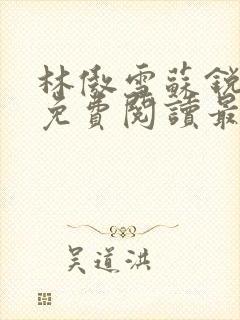 林傲雪蘇銳
免費閱讀最
吳道洪